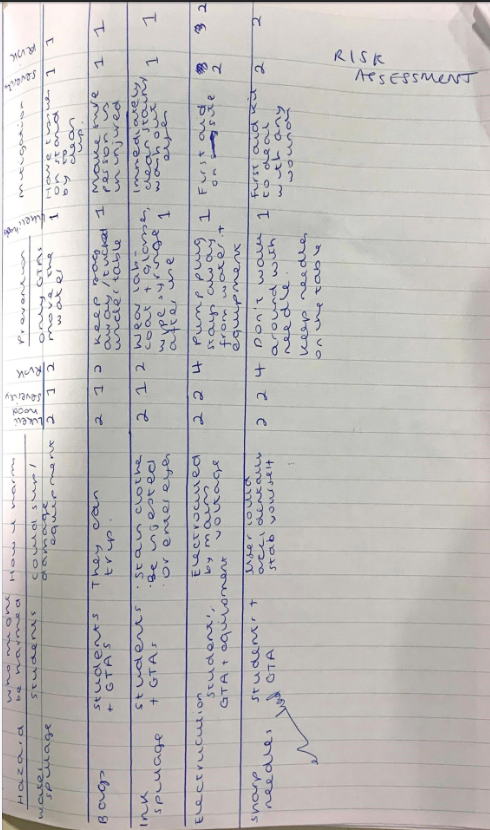 RISK
ASSESSMENT
Hazard
who might
be harmed
How
harm
Likeli
hood
severity
Risk
Prevention
mitigation
severity
Risk
water
spillage
students
could slip /
damage
equipment
2
1
2
only GTAs
move the
water
1
Have
on stand
by to
clean
up.
1
1
Bags
students
+ GTAs
They can
trip.
2
1
2
Keep bag
away / tucked
under table
1
Make sure
person is
uninjured
1
1
Ink
spillage
students
+ GTAs
· Stain clothe
· Be ingested
or enter eyes
2
1
2
Wear lab-
coat + glasses,
wipe syringe
after use
1
Immediately
clean stains,
wash out
eyes
1
1
Electrocution
students,
GTA + equipment
Electrocuted
by mains
voltage
2
2
4
Pump plug
stays away
from water +
equipment
1
First aid
on site
2
2
sharp
needles
students +
GTA
User could
accidentally
stab yourself
2
2
4
Don't walk
around with
needle.
Keep needle
on the table
1
First aid kit
to deal
with any
wounds
2
2